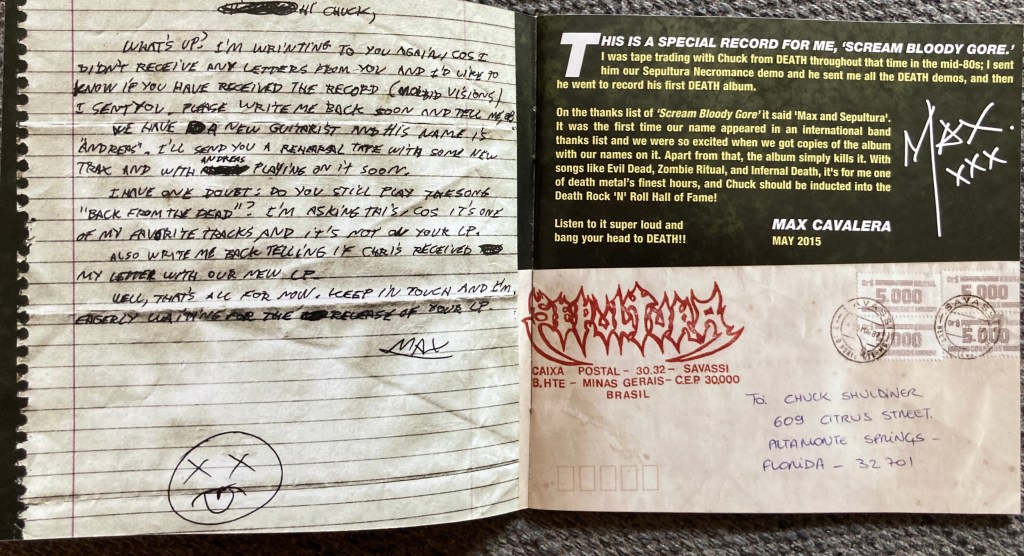 HI CHUCK,
WHAT'S UP? I'M WRINTING TO YOU AGAIN, COS I
DIDN'T RECEIVE ANY LETTERS FROM YOU AND I'D LIKE TO
KNOW IF YOU HAVE RECEIVED THE RECORD (MORBID VISIONS)
I SENT YOU. PLEASE WRITE ME BACK SOON AND TELL ME,
WE HAVE A NEW GUITARIST AND HIS NAME IS
"ANDREAS". I'LL SEND YOU A REHEARSAL TAPE WITH SOME NEW
TRAX AND WITH ANDREAS PLAYING ON IT SOON.
I HAVE ONE DOUBT: DO YOU STILL PLAY THE SONG
"BACK FROM THE DEAD"? I'M ASKING THIS, COS IT'S ONE
OF MY FAVORITE TRACKS AND IT'S NOT ON YOUR LP.
ALSO WRITE ME BACK TELLING IF CHRIS RECEIVED
MY LETTER WITH OUR NEW LP.
WELL, THAT'S ALL FOR NOW. KEEP IN TOUCH AND I'M
EAGERLY WAITING FOR THE RELEASE OF YOUR LP.
MAX
THIS IS A SPECIAL RECORD FOR ME, 'SCREAM BLOODY GORE.'
I was tape trading with Chuck from DEATH throughout that time in the mid-80s; I sent
him our Sepultura Necromance demo and he sent me all the DEATH demos, and then
he went to record his first DEATH album.
On the thanks list of 'Scream Bloody Gore' it said 'Max and Sepultura'.
It was the first time our name appeared in an international band
thanks list and we were so excited when we got copies of the album
with our names on it. Apart from that, the album simply kills it. With
songs like Evil Dead, Zombie Ritual, and Infernal Death, it's for me one
of death metal's finest hours, and Chuck should be inducted into the
Death Rock 'N' Roll Hall of Fame!
Listen to it super loud and
bang your head to DEATH!!
MAX CAVALERA
MAY 2015
MAX.
XXX
SEPULTURA
CAIXA POSTAL - 30.32 - SAVASSI
B.HTE - MINAS GERAIS - C.E.P 30,000
BRASIL
5.000
5.000
5.000
SAVASSI
SAVASSI
TO: CHUCK SHULDINER
609 CITRUS STREET.
ALTAMONTE SPRINGS -
FLORIDA - 32701